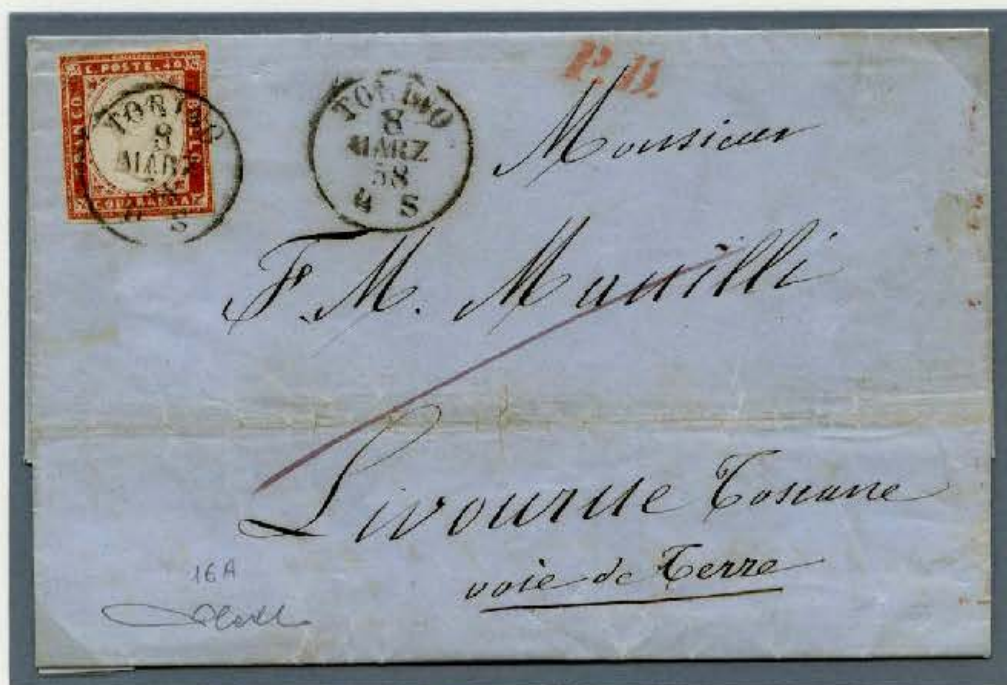 C. POSTE 40
FRANCO
BOLLO
C. QUARANTA
TORINO
8
MARZ
58
4 S
TORINO
8
MARZ
58
4 S
P.D.
Monsieur
F. M.
Livourne Toscane
voie de Terre
16A